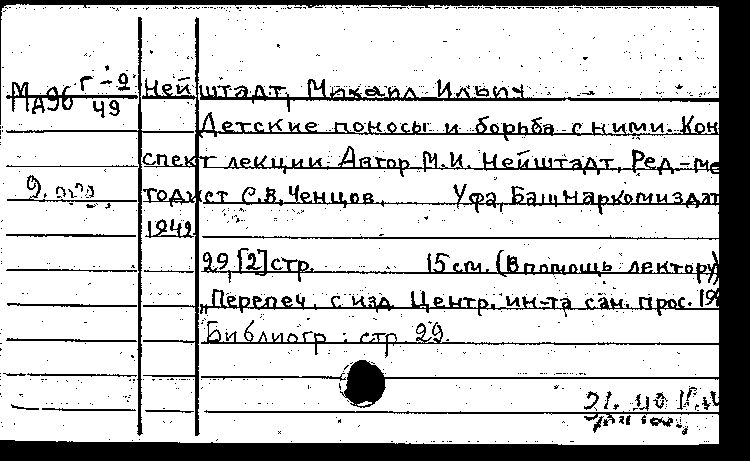 МД96 Г-9/49 Нейштадт, Михаил Ильич
Детские поносы и борьба с ними. Кон
спект лекции. Автор М.И. Нейштадт, Ред.-ме
тодист С.В. Ченцов. Уфа, Башнаркомиздат
1942
29,[2] стр. 15 см. (В помощь лектору)
„Перепеч. с изд. Центр. ин-та сан. прос. 19
Библиогр: стр. 29.